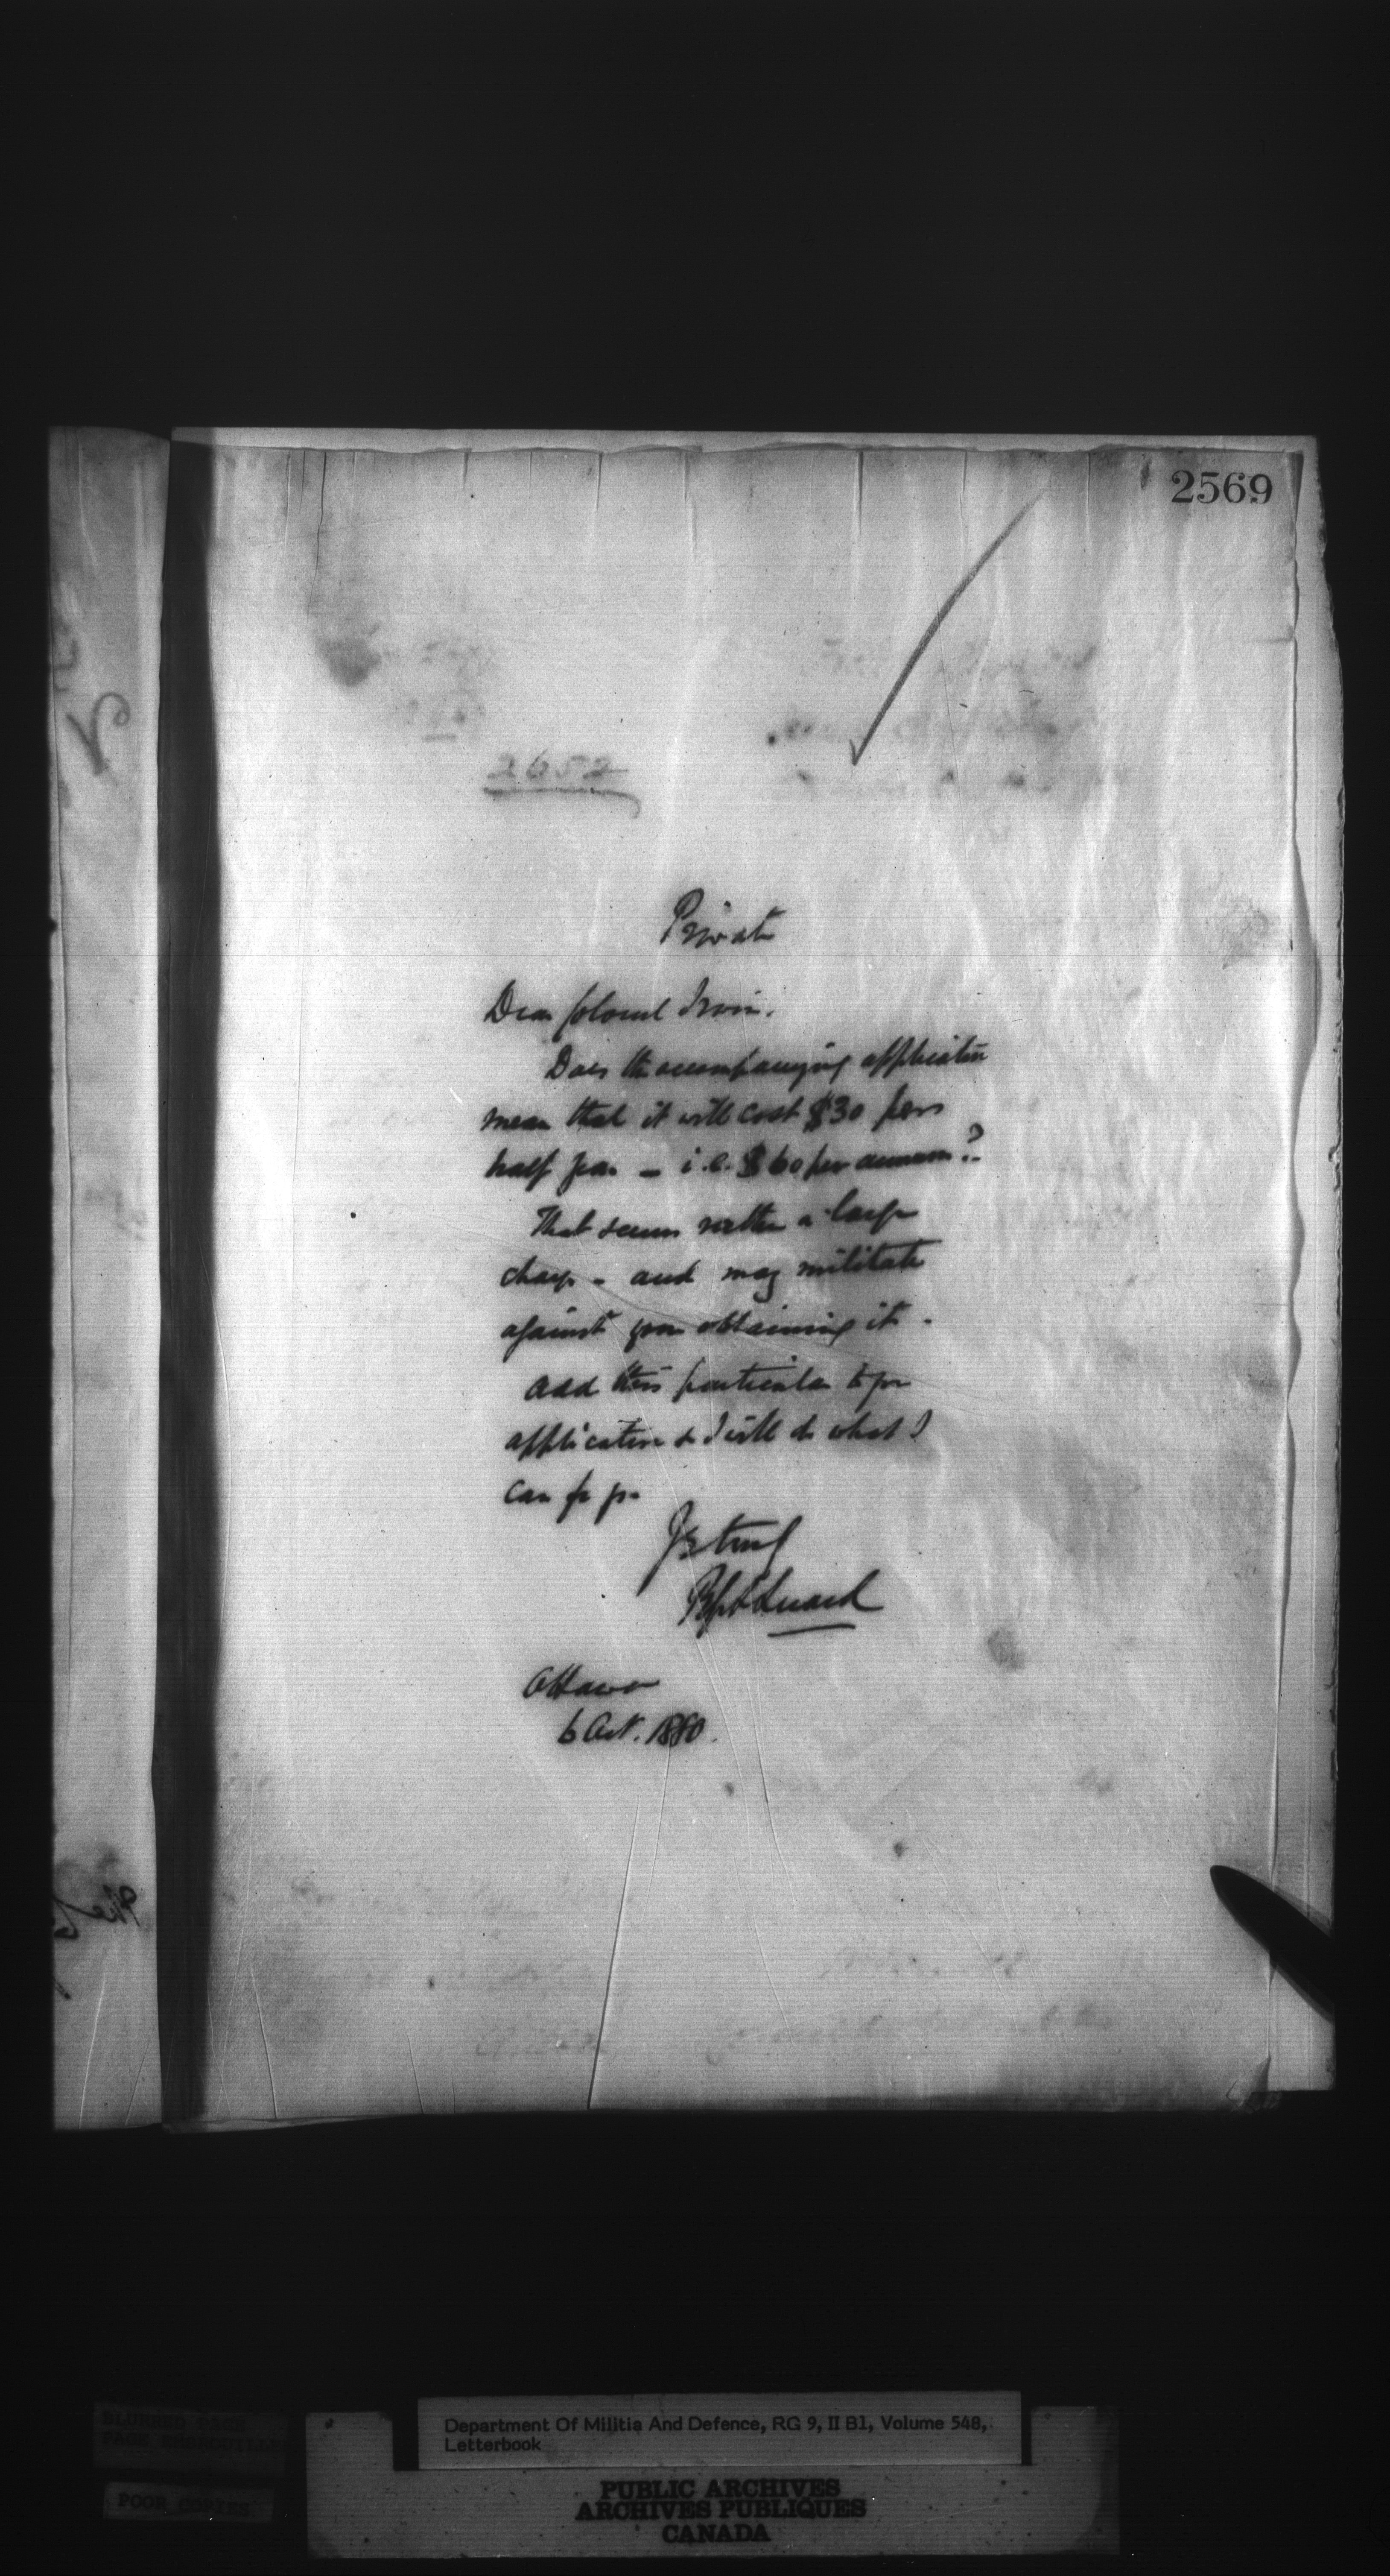 2569
2652
Private
Dear Colonel Irwin.
Does the accompanying application
mean that it will cost $30 per
half year - i.e. $60 per annum?
That seems rather a large
charge - and may militate
against your obtaining it -
Add this particular to your
application & I will do what I
can for you
Yrs truly
Luard
Ottawa
6 Oct. 1880.
BLURRED PAGE
PAGE EMBROUILLEE
POOR COPIES
Department Of Militia And Defence, RG 9, II B1, Volume 548,
Letterbook
PUBLIC ARCHIVES
ARCHIVES PUBLIQUES
CANADA